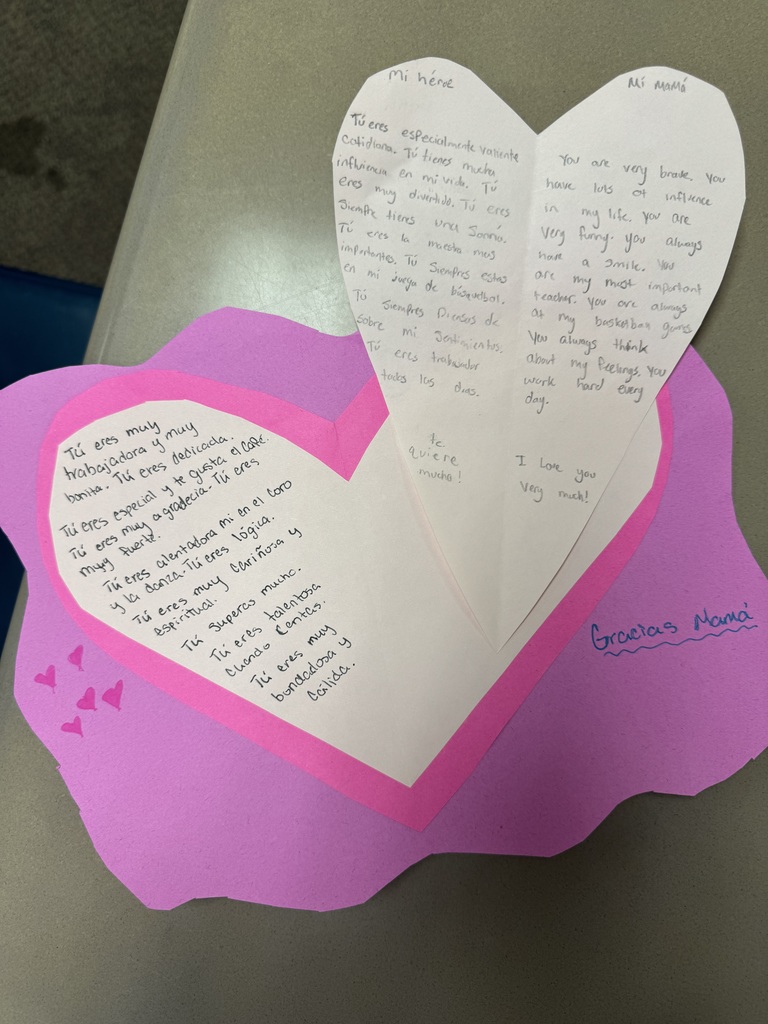 Mi héroe
Tú eres especialmente valiente
cotidiana. Tú tienes mucha
influencia en mi vida. Tú
eres muy divertido. Tú eres
Siempre tienes una Sonrió.
Tú eres la maestra mas
importantes. Tú Siempres estas
en mi juego de básquetbol.
Tú Siempres Piensas de
sobre mi Sentimientos.
Tú eres trabajador
todos los dias.
te
quiere
mucho!
Mi MaMá
You are very brave. You
have lots of influence
in my life. You are
Very funny. you always
have a smile. You
are my most important
teacher. you are always
at my basketball games
You always think
about my feelings. You
work hard every
day.
I Love you
Very much!
Tú eres muy
trabajadora y muy
bonita. Tú eres dedicada.
Tú eres especial y te gusta el café.
Tú eres muy agradecia. Tú eres
muy fuerte.
Tú eres alentadora mi en el coro
y la danza. Tú eres lógica.
Tú eres muy Cariñosa y
espiritual.
Tú superas mucho.
Tú eres talentosa
Cuando Cantas.
Tú eres muy
bondadosa y
Cálida.
Gracias Mamá